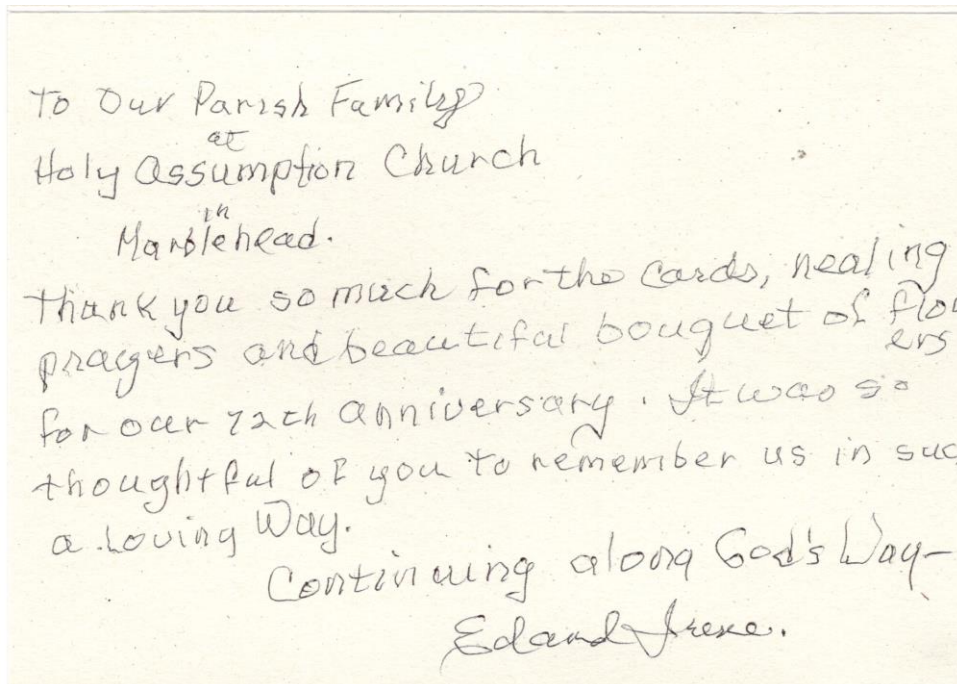 To Our Parish Family
at
Holy Assumption Church
in
Marblehead.
Thank you so much for the cards, healing
prayers and beautiful bouquet of flow
ers
for our 72th anniversary. It was so
thoughtful of you to remember us in suc
a Loving Way.
Continuing along God's Way—
Ed and Irene.